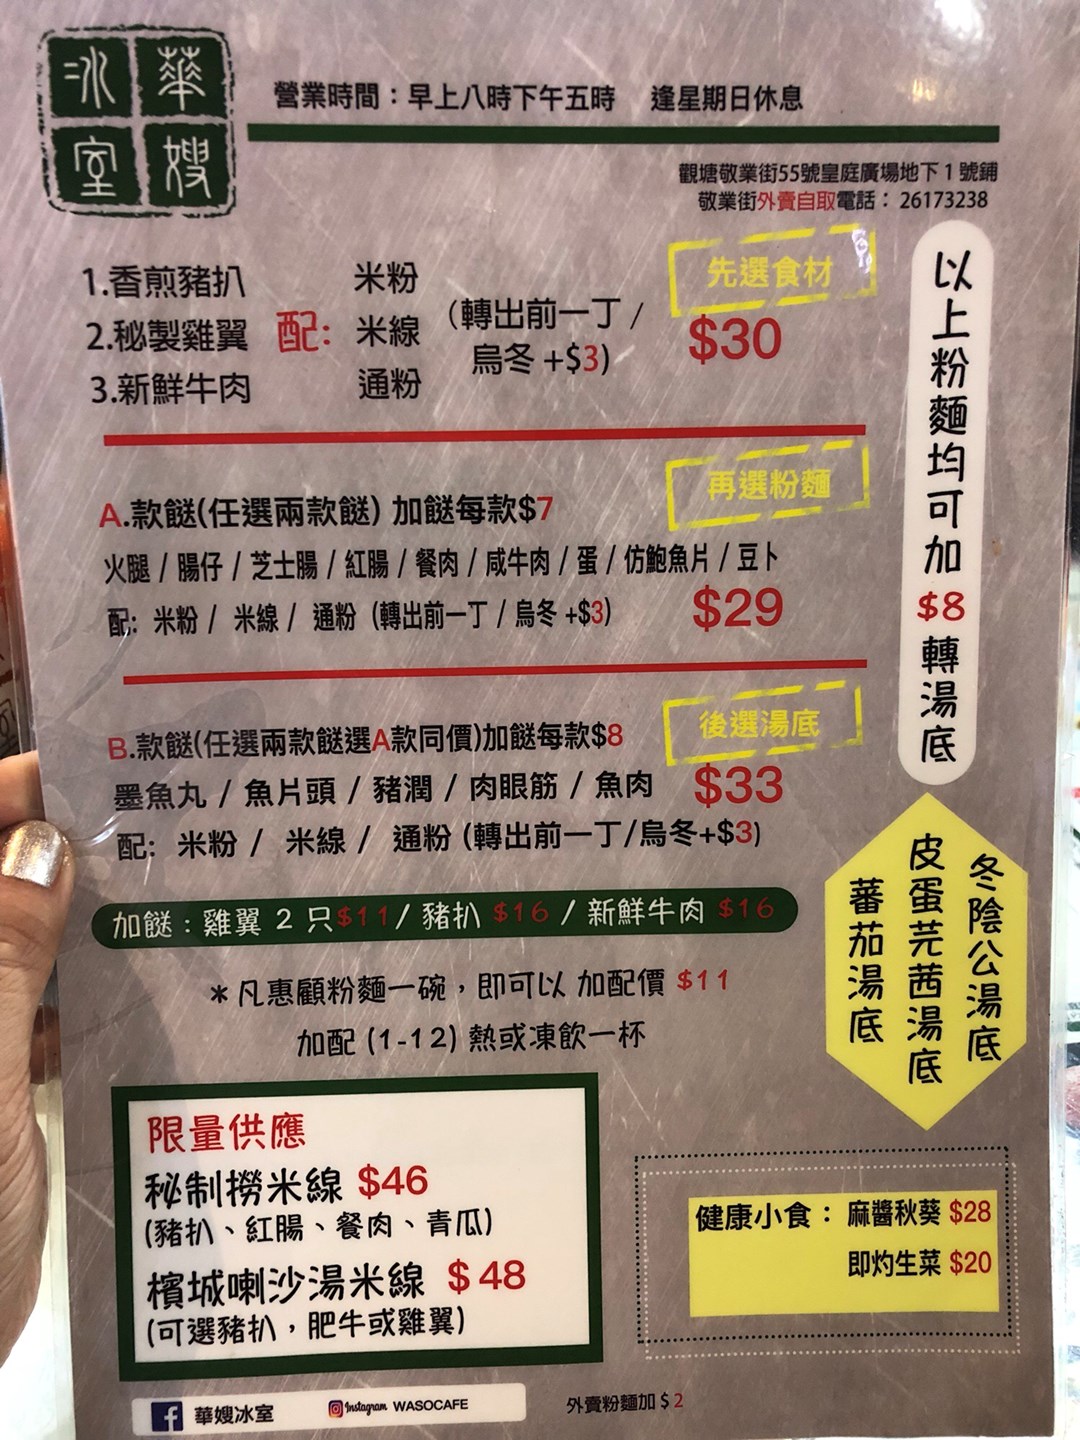 華嫂冰室
營業時間：早上八時下午五時 逢星期日休息
觀塘敬業街55號皇庭廣場地下1號鋪
敬業街外賣自取電話： 26173238
先選食材
1.香煎豬扒
2.秘製雞翼
3.新鮮牛肉
配:
米粉
米線
通粉
(轉出前一丁 /
烏冬 +$3)
$30
再選粉麵
A.款餸(任選兩款餸) 加餸每款$7
火腿 / 腸仔 / 芝士腸 / 紅腸 / 餐肉 / 咸牛肉 / 蛋 / 仿鮑魚片 / 豆卜
配: 米粉 / 米線 / 通粉 (轉出前一丁 / 烏冬 +$3)
$29
後選湯底
B.款餸(任選兩款餸選A款同價)加餸每款$8
墨魚丸 / 魚片頭 / 豬潤 / 肉眼筋 / 魚肉
$33
配: 米粉 / 米線 / 通粉 (轉出前一丁/烏冬+$3)
加餸：雞翼 2 只$11/ 豬扒 $16 / 新鮮牛肉 $16
＊凡惠顧粉麵一碗，即可以 加配價 $11
加配 (1-12) 熱或凍飲一杯
以上粉麵均可加$8轉湯底
冬陰公湯底
皮蛋芫茜湯底
蕃茄湯底
限量供應
秘制撈米線 $46
(豬扒、紅腸、餐肉、青瓜)
檳城喇沙湯米線 $48
(可選豬扒，肥牛或雞翼)
健康小食： 麻醬秋葵 $28
即灼生菜 $20
華嫂冰室
Instagram WASOCAFE
外賣粉麵加 $ 2